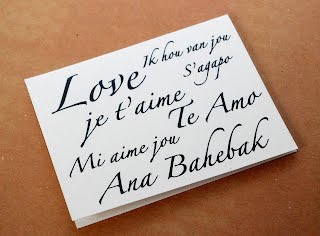 Love
Ik hou van jou
S'agapo
je t'aime
Te Amo
Mi aime jou
Ana Bahebak